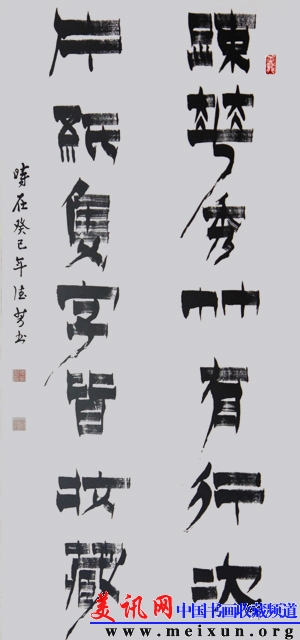 疎華秀竹有行次
片紙隻字皆收藏
時在癸巳年德 书
美讯网 中国书画收藏频道
www.meixun.org